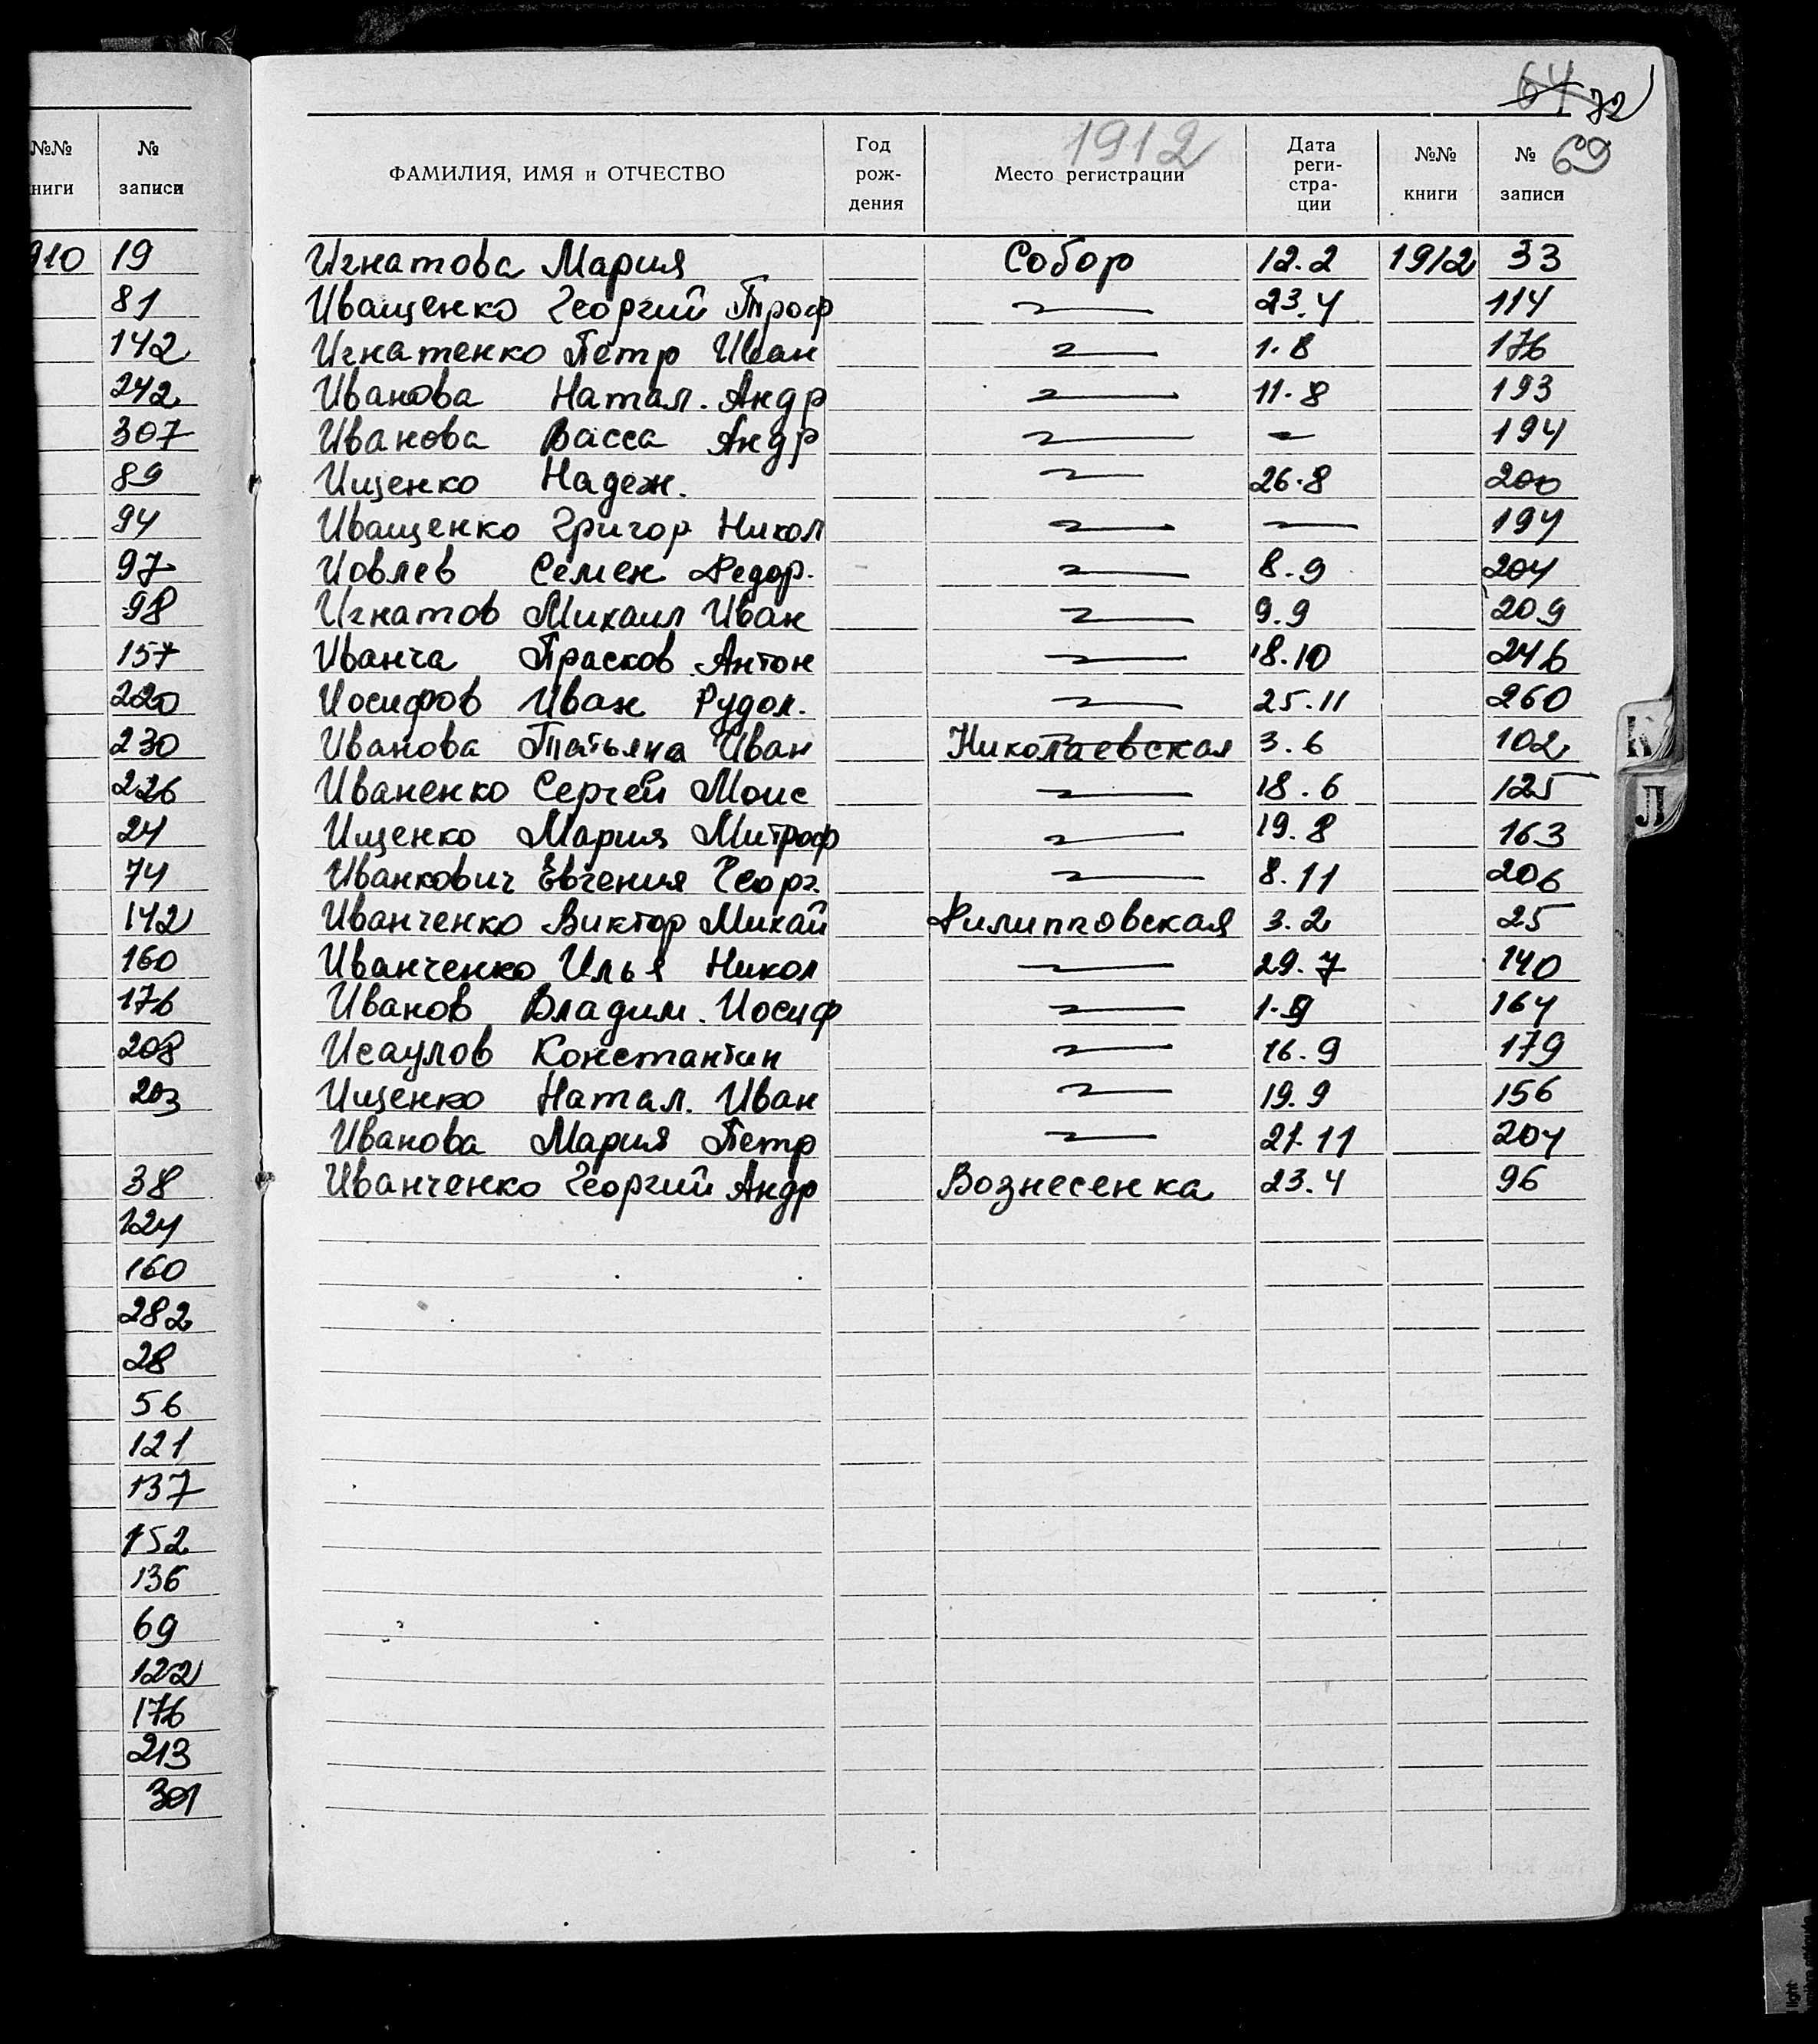 64 72
1912
69
№№ книги № записи
ФАМИЛИЯ, ИМЯ и ОТЧЕСТВО Год рож-дения Место регистрации Дата реги-стра-ции №№ книги № записи
910 19 Игнатова Мария Собор 12.2 1912 33
81 Иващенко Георгий Троф — 23.4 114
142 Игнатенко Петр Иван — 1.8 176
242 Иванова Натал. Андр — 11.8 193
307 Иванова Васса Андр — — 194
89 Ищенко Надеж. — 26.8 200
94 Иващенко Григор Никол — — 194
97 Иовлев Семен Федор. — 8.9 204
98 Игнатов Михаил Иван — 9.9 209
157 Иванча Прасков. Антон — 18.10 246
220 Иосифов Иван Рудол. — 25.11 260
230 Иванова Татьяна Иван Николаевская 3.6 102
226 Иваненко Сергей Моис — 18.6 125
24 Ищенко Мария Митроф — 19.8 163
74 Иванкович Евгения Георг. — 8.11 206
142 Иванченко Виктор Михай Филипповская 3.2 25
160 Иванченко Илья Никол — 29.7 140
176 Иванов Владим. Иосиф — 1.9 164
208 Исаулов Константин — 16.9 179
203 Ищенко Натал. Иван — 19.9 156
Иванова Мария Петр — 21.11 204
38 Иванченко Георгий Андр Вознесенка 23.4 96
124
160
282
28
56
121
137
152
136
69
122
176
213
301
К
Л